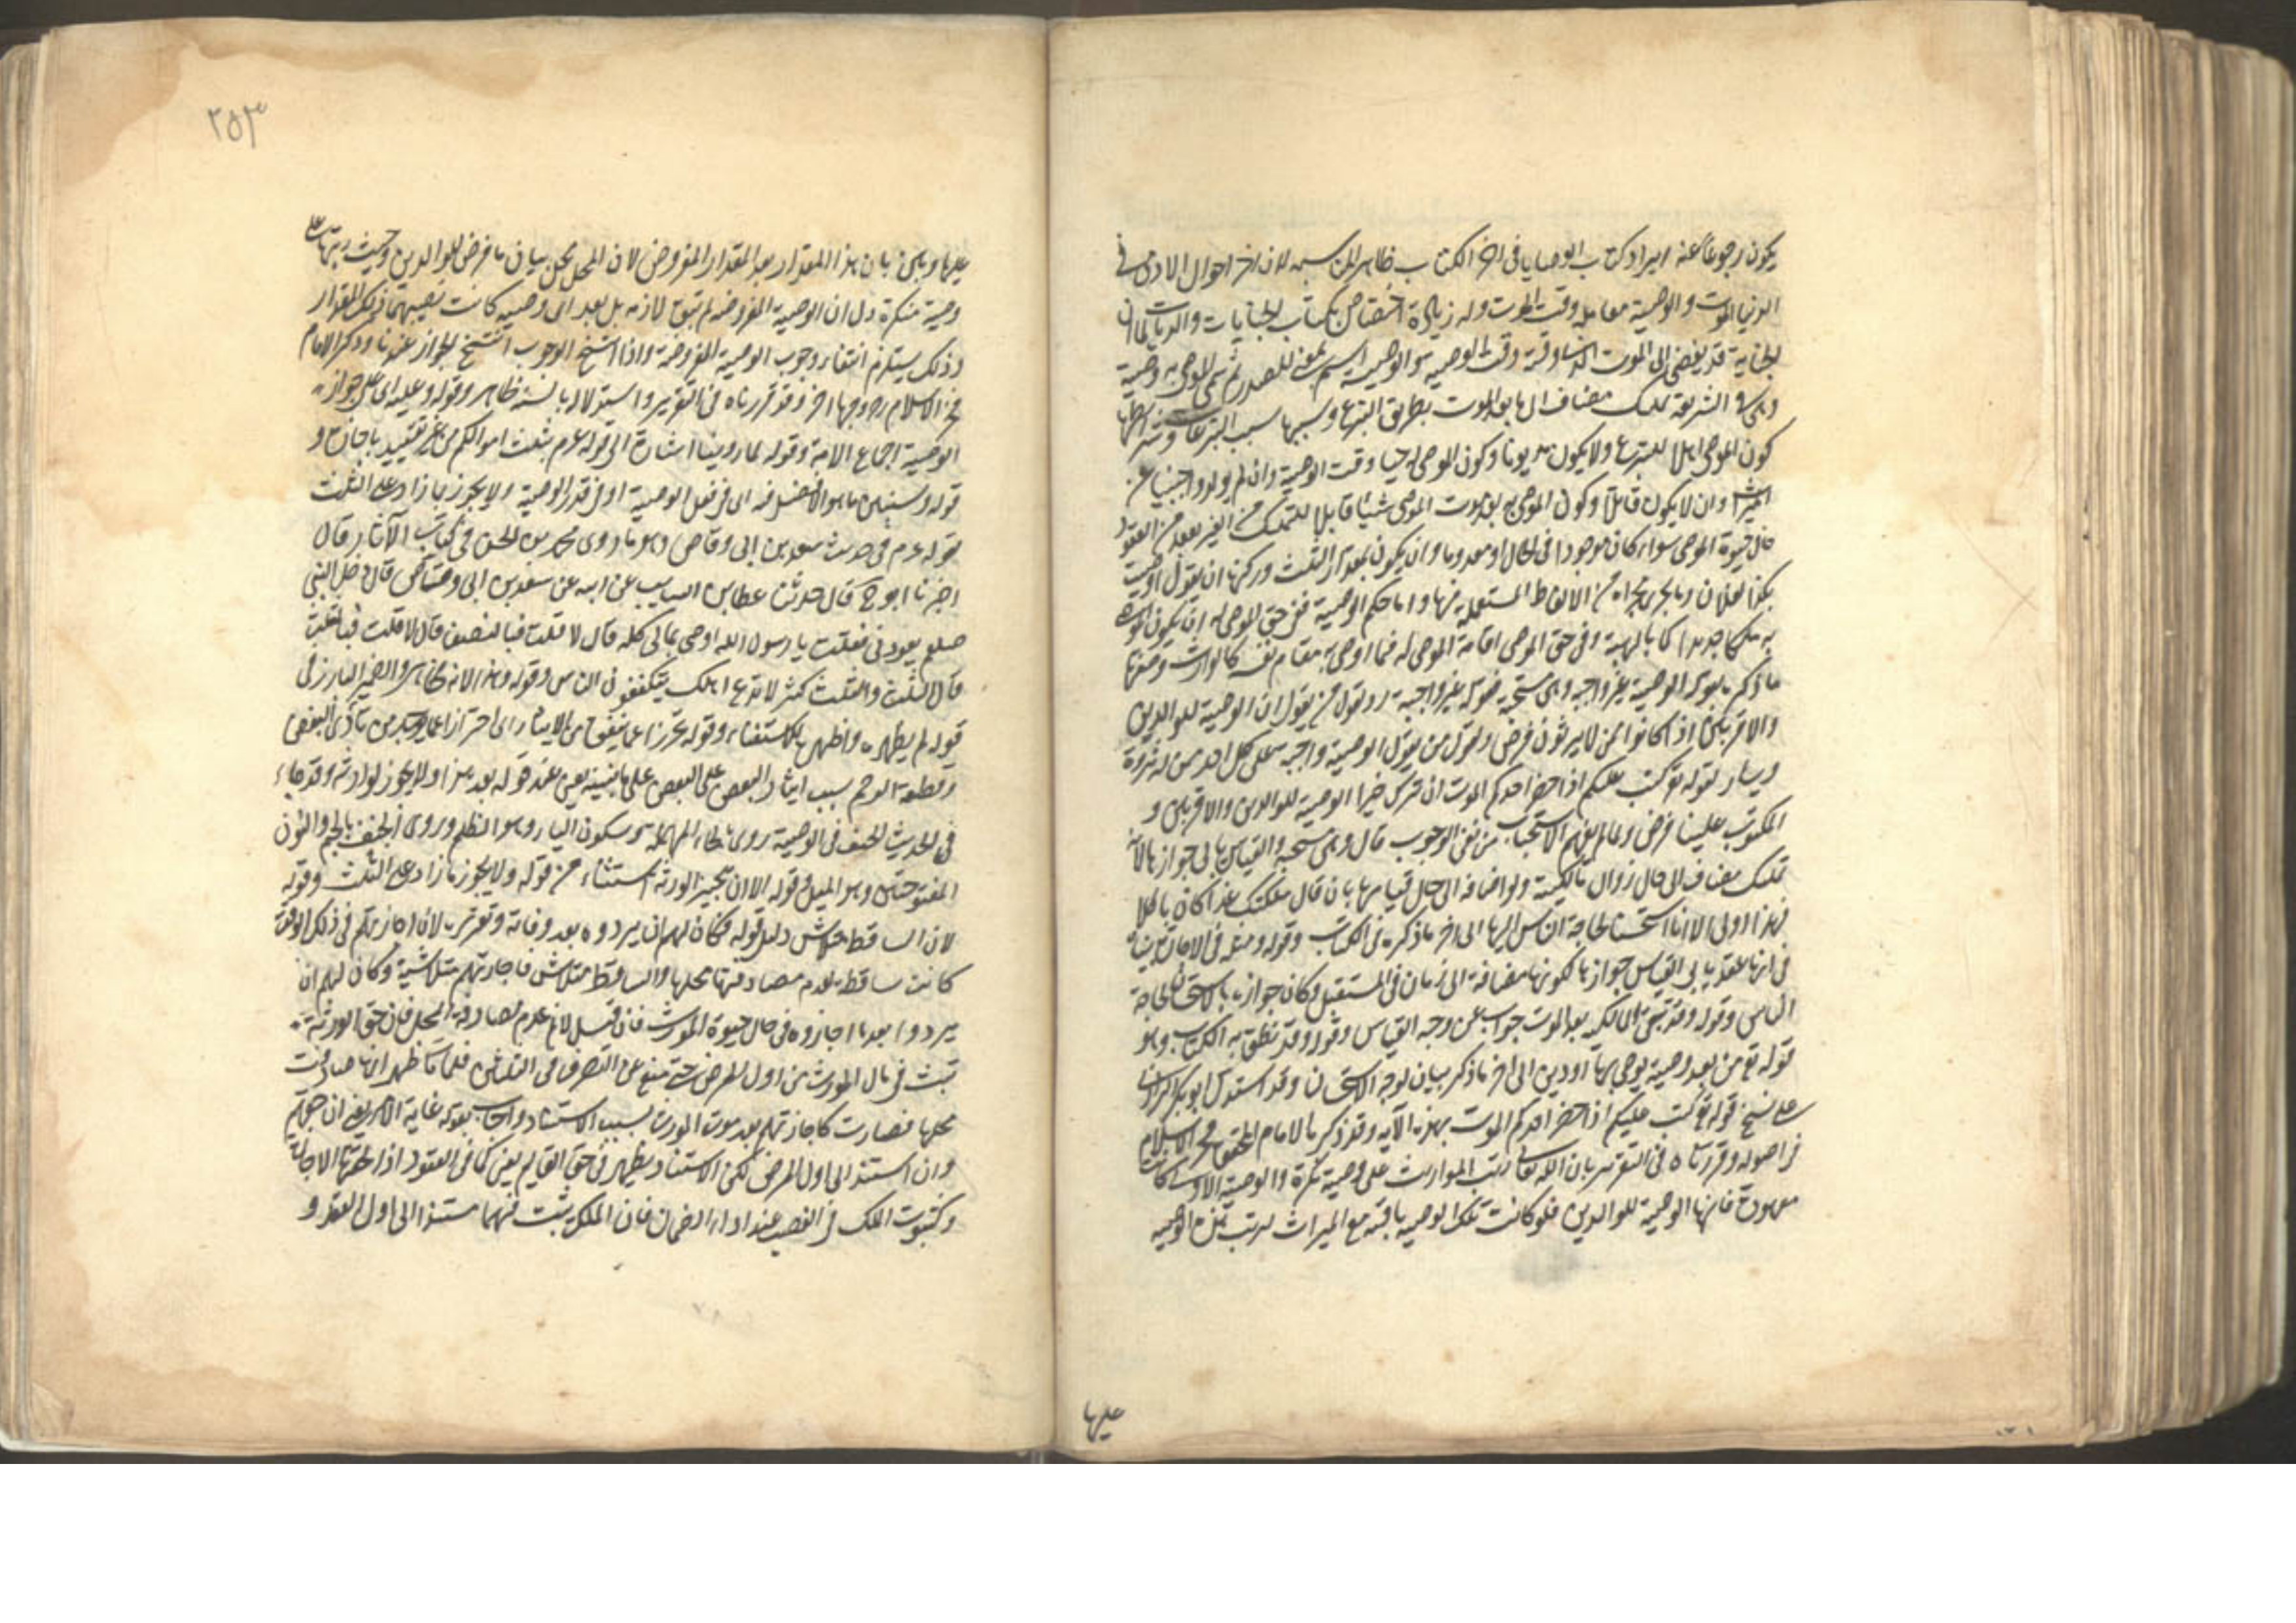 يكون رجوعا عنه ايراد كتاب الوصايا فى اخر الكتاب ظاهر المناسبة لان اخر احوال الادمى فى
الدنيا الموت والوصية معاملة وقت الموت وله زيادة اختصاص بكتاب الجنايات والديات لما ان
الجناية قد يفضى الى الموت الذى وقته وقت الوصية والوصية اسم بمعنى المصدر ثم سمى الموصى به وصية
وهى فى الشريعة تمليك مضاف الى ما بعد الموت بطريق التبرع وسببها سبب التبرعات وشرائطها
كون الموصى اهلا للتبرع ولا يكون مديونا وكون الموصى له حيا وقت الوصية وان لم يولد واجنبيا عن
الميراث وان لا يكون قاتلا وكون الموصى به بعد موت الموصى شيئا قابلا للتمليك من الغير بعقد من العقود
حال حيوة الموصى سواء كان موجودا فى الحال او معدوما وان يكون بمقدار الثلث وركنها ان يقول اوصيت
بكذا لفلان وما يجرى مجراه من الالفاظ المستعملة فيها واما حكم الوصية ففى حق الموصى له ان يكون الموصى
به ملكا جديدا كما بالهبة وفى حق الموصى اقامة الموصى له فيما اوصى به مقام نفسه كالوارث وصفتها
ما ذكره بقوله الوصية غير واجبة وهى مستحبة فقوله غير واجبة رد لقول من يقول ان الوصية للوالدين
والاقربين اذا كانوا ممن لا يرثون فرض ولقول من يقول الوصية واجبة على كل احد ممن له ثروة
ويسار لقوله تع كتب عليكم اذا حضر احدكم الموت ان ترك خيرا الوصية للوالدين والاقربين و
المكتوب علينا فرض ولما لم يفهم الاستحباب من نفى الوجوب قال وهى مستحبة والقياس يابى جوازها لانه
تمليك مضاف الى حال زوال مالكيته ولو اضافه الى حال قيامها بان قال ملكتك غدا كان باطلا
فهذا اولى الا انا استحسناه لحاجة الناس اليها الى اخر ما ذكره فى الكتاب وقوله ومثله فى الاجارة بيناه
فى انها عقد يابى القياس جوازها لكونها مضافة الى زمان فى المستقبل وكان جوازها بالاستحسان لحاجة
الناس وقوله وقد تبقى المالكية بعد الموت جواب عن وجه القياس وقوله وقد نطق به الكتاب وهو
قوله تع من بعد وصية يوصى بها او دين الى اخر ما ذكر بيان لوجه الاستحسان وقد استدل ابو بكر الرازى
على نسخ قوله تع كتب عليكم اذا حضر احدكم الموت بهذه الآية وقد ذكره الامام المحقق فخر الاسلام
فى اصوله وقررناه فى التقرير بان الله تعالى رتب المواريث على وصية نكرة والوصية الاولى كانت
معهودة فانها الوصية للوالدين فلو كانت تلك الوصية باقية مع الميراث لرتب على هذه الوصية
عليها
٢٥٣
عليها وبين بان هذا المقدار بعد المقدار المفروض لان المحل محل بيان ما فرض للوالدين وحيث رتبها على
وصية منكرة دل ان الوصية المفروضة لم تبق لازمة بل بعد اى وصية كانت نصيبهما ذلك المقدار
وذلك يستلزم انتفاء وجوب الوصية المفروضة واذا انتسخ الوجوب انتسخ الجواز عندنا وذكر الامام
فخر الاسلام وجوها اخر وقد قررناه فى التقرير واستدلاله بالسنة ظاهر وقوله وعليه اى على جواز
الوصية اجماع الامة وقوله لما روينا اشارة الى قوله عم بثلث اموالكم من غير تقييد باجازة و
قوله وسنبين ما هو الافضل فيه اى فى فعل الوصية او فى قدر الوصية ولا يجوز بما زاد على الثلث
لقوله عم فى حديث سعد بن ابى وقاص وهو ما روى محمد بن الحسن فى كتاب الآثار قال
اخبرنا ابو ح قال حدثنا عطا بن السايب عن ابيه عن سعد بن ابى وقاص قال دخل النبى
صلعم يعودنى فقلت يا رسول الله اوصى بمالى كله قال لا قلت فبالنصف قال لا قلت فبالثلث
قال الثلث والثلث كثير لا تدع اهلك يتكففون الناس وقوله وهذا لانه ظاهر والضمير البارز فى
قوله لم يظهره واظهر للاستغناء وقوله تحرزا عما يتفق من الايثار اى احترازا عما يوجد من تأذى البعض
وقطيعة الرحم بسبب ايثار البعض على البعض على ما نبينه يعنى عند قوله بعد هذا ولا يجوز لوارثه وقد جاء
فى الحديث الحيف فى الوصية روى بالحاء المهملة وسكون الياء وهو الظلم وروى الجنف بالجيم والنون
المفتوحتين وهو الميل وقوله الا ان يجيز الورثة استثناء من قوله ولا يجوز بما زاد على الثلث وقوله
لان الساقط متلاش دليل قوله فكان لهم ان يردوه بعد وفاته وتقريره لان اجازتهم فى ذلك الوقت
كانت ساقطة لعدم مصادفتها محلها والساقط متلاش فاجازتهم متلاشية وكان لهم ان
يردوا بعد ما اجازوه فى حال حيوة المورث فان قيل لا نم عدم مصادفة المحل فان حق الورثة
تثبت فى مال المورث من اول المرض حتى منع عن التصرف فى الثلثين فلما مات ظهر انها صادفت
محلها فصارت كاجازتهم بعد موت المورث بسبب الاستناد واجاب بقوله غاية الامر يعنى ان حقهم
وان استند الى اول المرض لكن الاستناد يظهر فى حق القايم يعنى كما فى العقود اذا لحقتها الاجازة
وكثبوت الملك فى الغصب عند اداء الضمان فان الملك يثبت فيهما مستندا الى اول العقد و